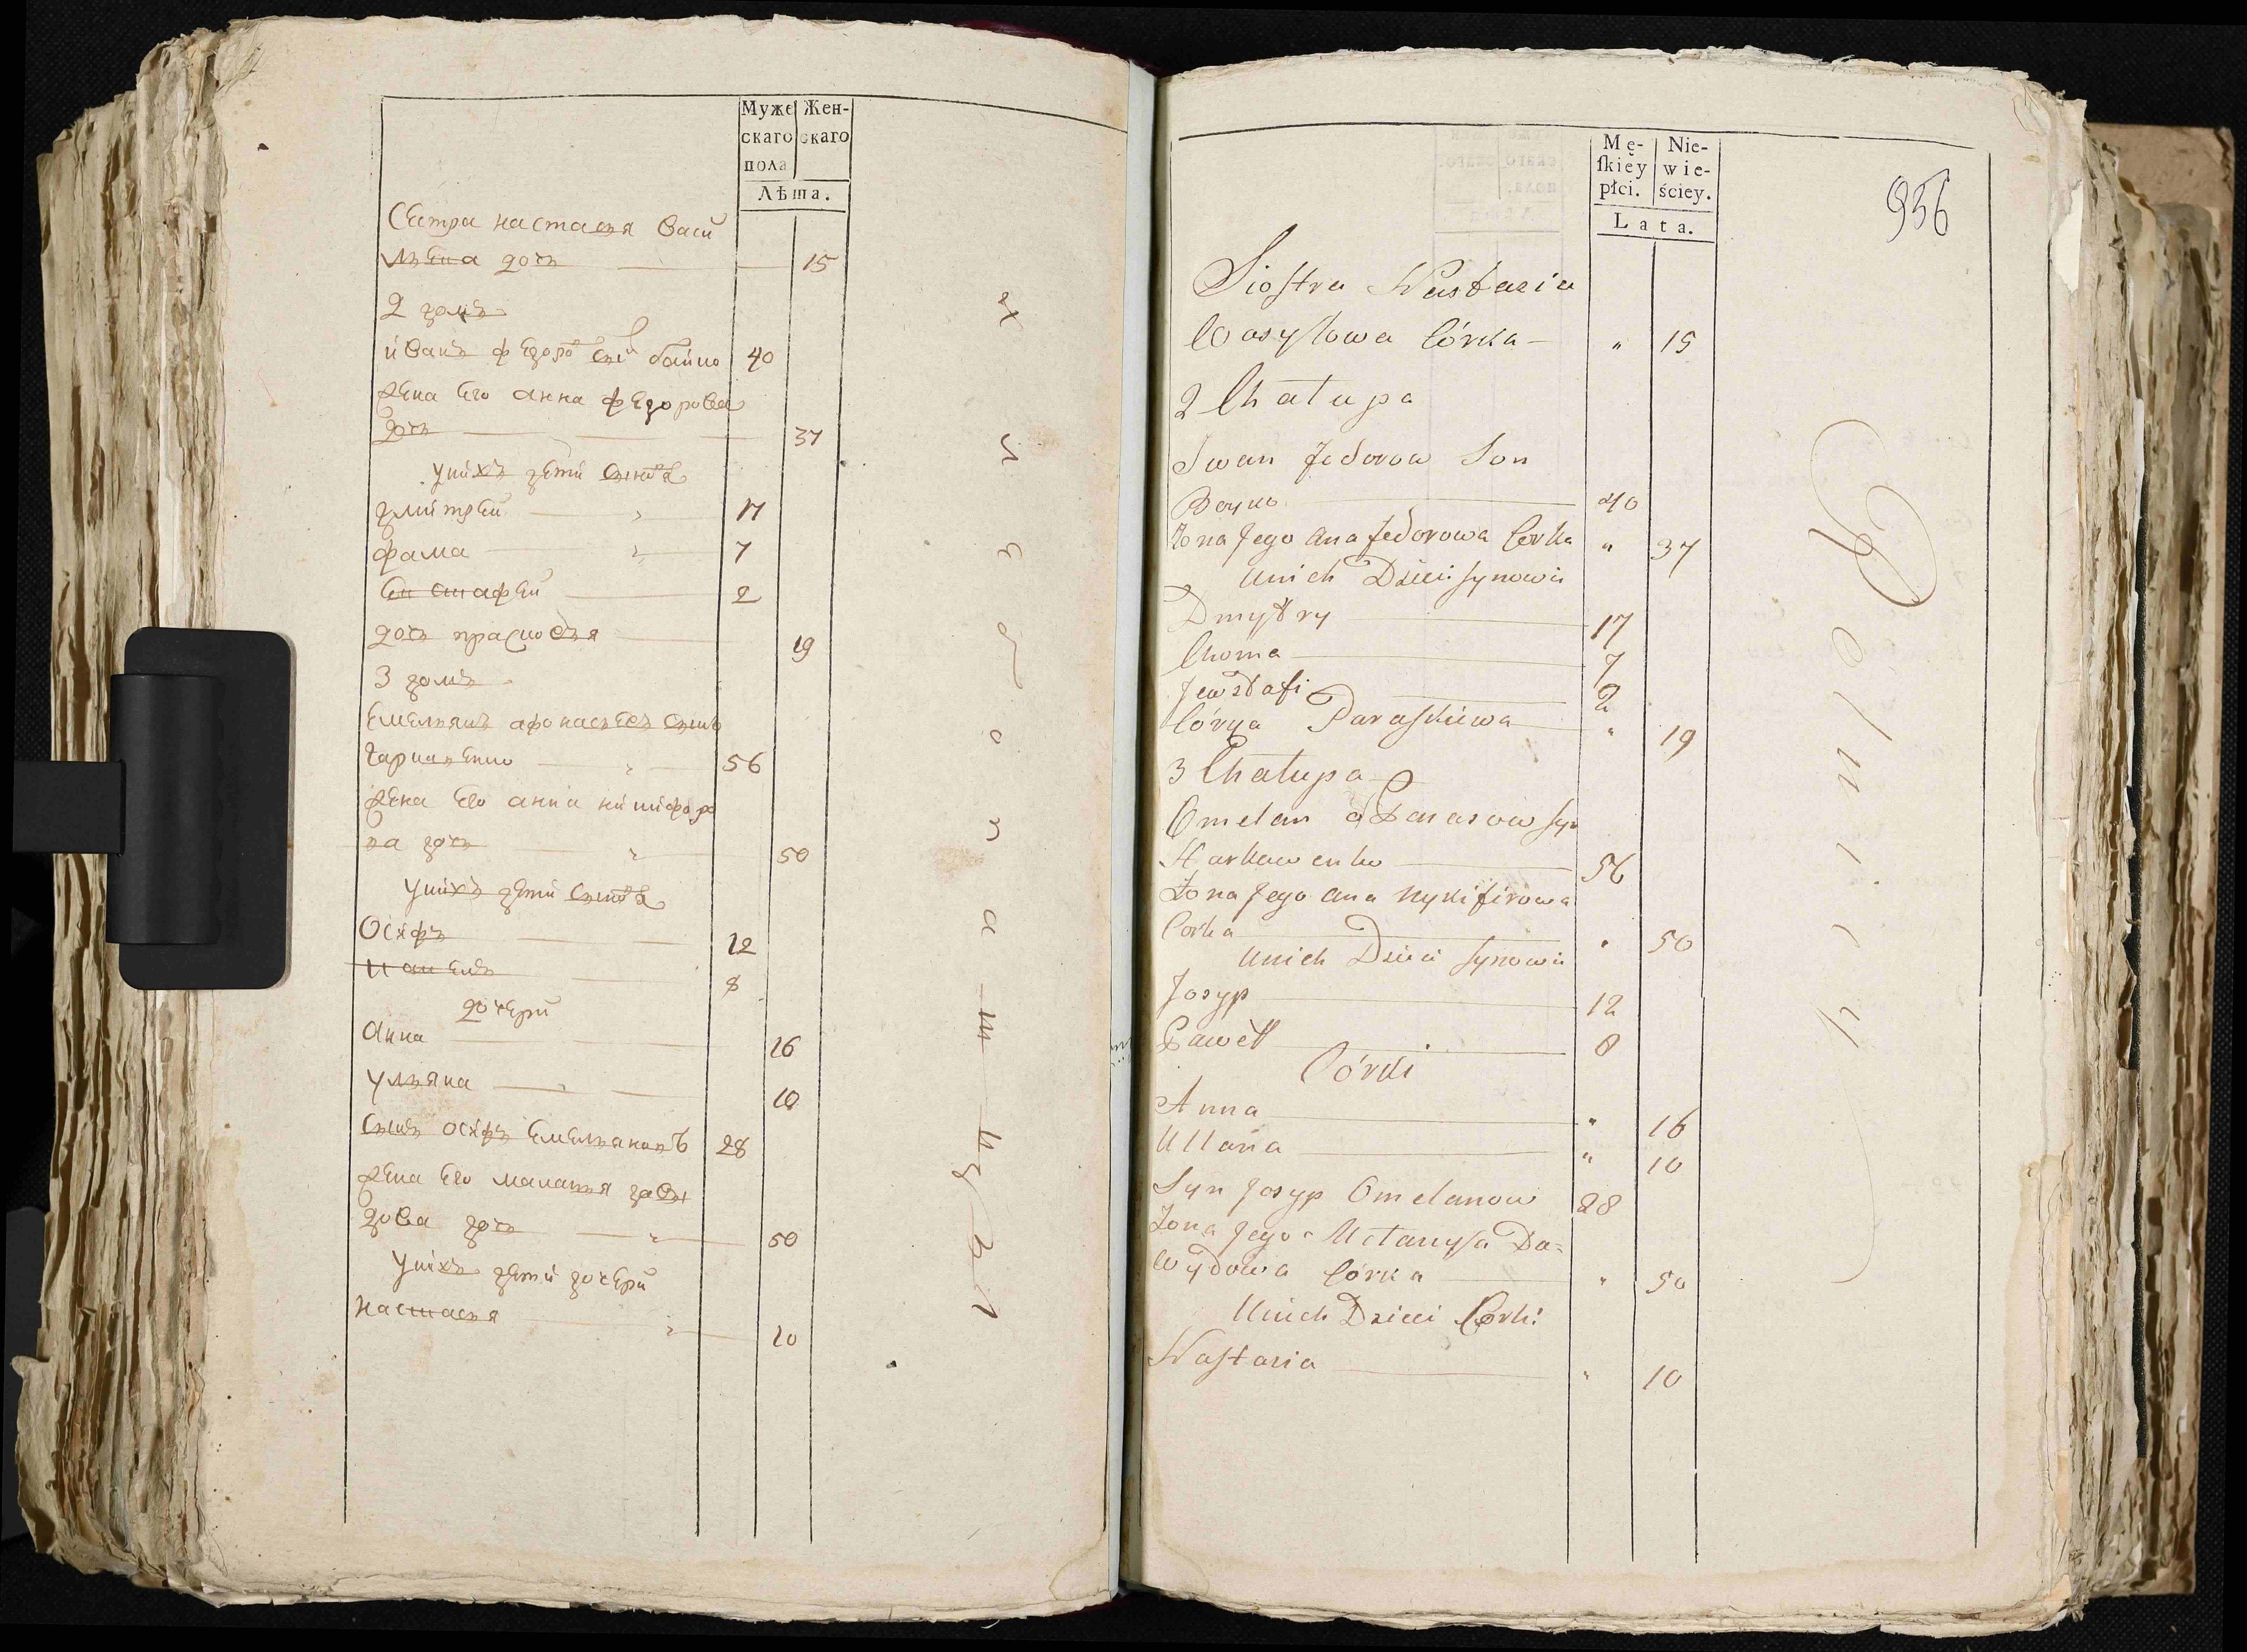 Муже
скаго
пола
Жен-
скаго
Лѣта.
Сестра настася Васи
льева дочь 15
2 домъ
иванъ федоро сынъ бойко 40
жена его анна федорова
дочь 37
у нихъ дети
дмитрей 17
фама 7
евстафей 2
дочь прасковья 19
3 домъ
Емельянъ афонасьевъ сынъ
56
жена его анна никифоро
ва дочь 50
у нихъ дети
Осифъ 12
павелъ 8
дочери
Анна 16
ульяна 10
сынъ осифъ Емельяновъ 28
жена его маланья давы
дова дочь 50
у нихъ дети дочери
настасья 10
Mę-
skiey
płci.
Nie-
wie-
ściey.
Lata.
936
Siostra Nastazia
Wasylowa Córka - " 15
2 Chałupa
Iwan Fedorow Son
Boyko 40
Żona Jego Ana Fedorowa Corka " 37
Unich Dzieci Synowie
Dmytry 17
Choma 7
Jewstafi 2
Córka Paraskiewa " 19
3 Chałupa
Omelan Apanasow Syn
Harkawenko 56
Żona Jego Ana Nykifirowa
Corka " 50
Unich Dzieci Synowie
Josyp 12
Paweł 8
Córki
Anna " 16
Ullana " 10
Syn Josyp Omelanow 28
Żona Jego Melanyja Da=
wydowa Córka " 50
Unich Dzieci Corki
Nastazia " 10